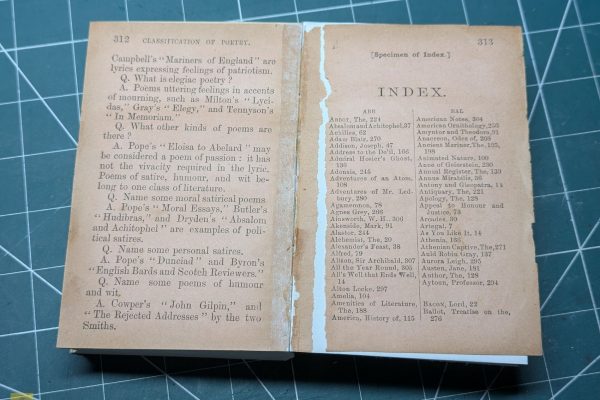 312 CLASSIFICATION OF POETRY.
Campbell's "Mariners of England" are
lyrics expressing feelings of patriotism.
Q. What is elegiac poetry ?
A. Poems uttering feelings in accents
of mourning, such as Milton's "Lyci-
das," Gray's "Elegy," and Tennyson's
"In Memoriam."
Q. What other kinds of poems are
there ?
A. Pope's "Eloisa to Abelard" may
be considered a poem of passion : it has
not the vivacity required in the lyric.
Poems of satire, humour, and wit be-
long to one class of literature.
Q. Name some moral satirical poems
A. Pope's "Moral Essays," Butler's
"Hudibras," and Dryden's "Absalom
and Achitophel" are examples of poli-
tical satires.
Q. Name some personal satires.
A. Pope's "Dunciad" and Byron's
"English Bards and Scotch Reviewers."
Q. Name some poems of humour
and wit.
A. Cowper's "John Gilpin," and
"The Rejected Addresses" by the two
Smiths.
313
[Specimen of Index.]
INDEX.
ABB
ABBOT, The, 224
Absalom and Achitophel, 37
Achilles, 62
Adam Blair, 270
Addison, Joseph, 47
Address to the De'il, 166
Admiral Hosier's Ghost,
136
Adonais, 245
Adventures of an Atom,
108
Adventures of Mr. Led-
bury, 280
Agamemnon, 78
Agnes Grey, 296
Ainsworth, W. H., 300
Akenside, Mark, 91
Alastor, 245
Alchemist, The, 20
Alexander's Feast, 38
Alfred, 79
Alison, Sir Archibald, 307
All the Year Round, 305
All's Well that Ends Well,
14
Alton Locke, 297
Amelia, 104
Amenities of Literature,
The, 188
America, History of, 115
BAL
American Notes, 304
American Ornithology, 256
Amyntor and Theodora, 91
Anacreon, Odes of, 208
Ancient Mariner, The, 195,
198
Animated Nature, 100
Anne of Geierstein, 230
Annual Register, The, 130
Annus Mirabilis, 36
Antony and Cleopatra, 14
Antiquary, The, 221
Apology, The, 128
Appeal to Honour and
Justice, 73
Arcades, 30
Artegal, 7
As You Like It, 14
Athenia, 166
Athenian Captive, The, 271
Auld Robin Gray, 157
Aurora Leigh, 295
Austen, Jane, 181
Author, The, 128
Aytoun, Professor, 204
BACON, Lord, 22
Ballot, Treatise on the,
276